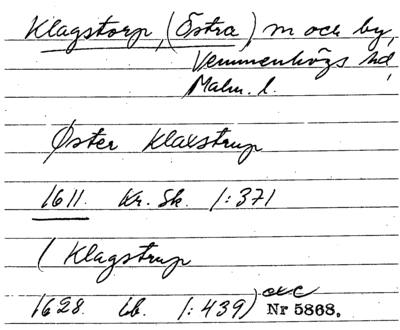 Klagstorp, (Östra) sn och by,
Vemmenhögs hd,
Malm. l.
Øster Klaxstrup
1611. Kr. Sk. 1:371
( Klagstrup
1628. Lb. 1:439) exc
Nr 5868.